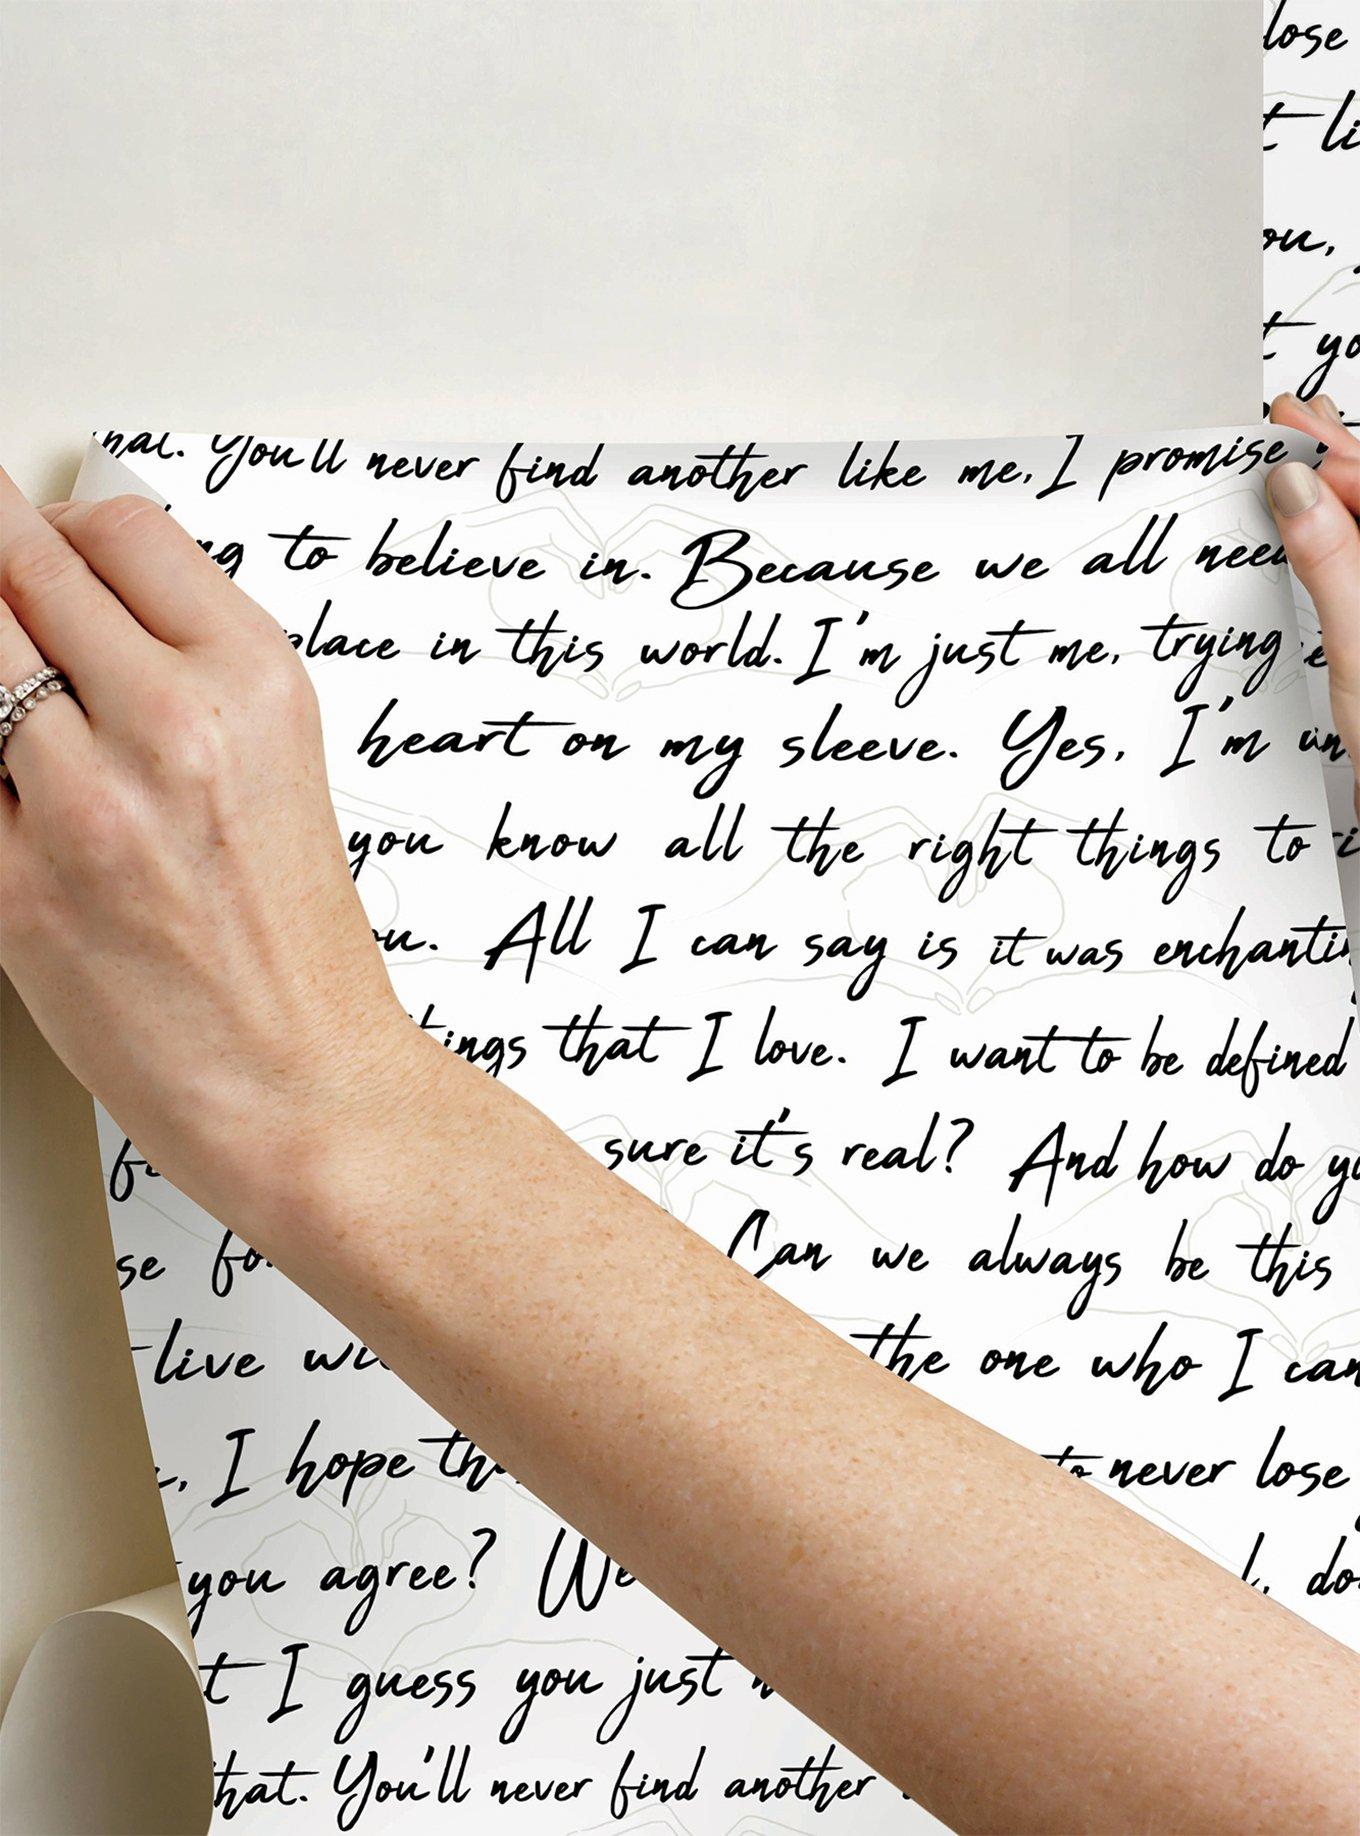 lose
li
you,
yo
that. You'll never find another like me, I promise
to believe in. Because we all need
place in this world. I'm just me, trying
heart on my sleeve. Yes, I'm
you know all the right things to
All I can say is it was enchanting
things that I love. I want to be defined
sure it's real? And how do you
Can we always be this
live the one who I can
I hope to never lose
you agree? We
I guess you just
that. You'll never find another